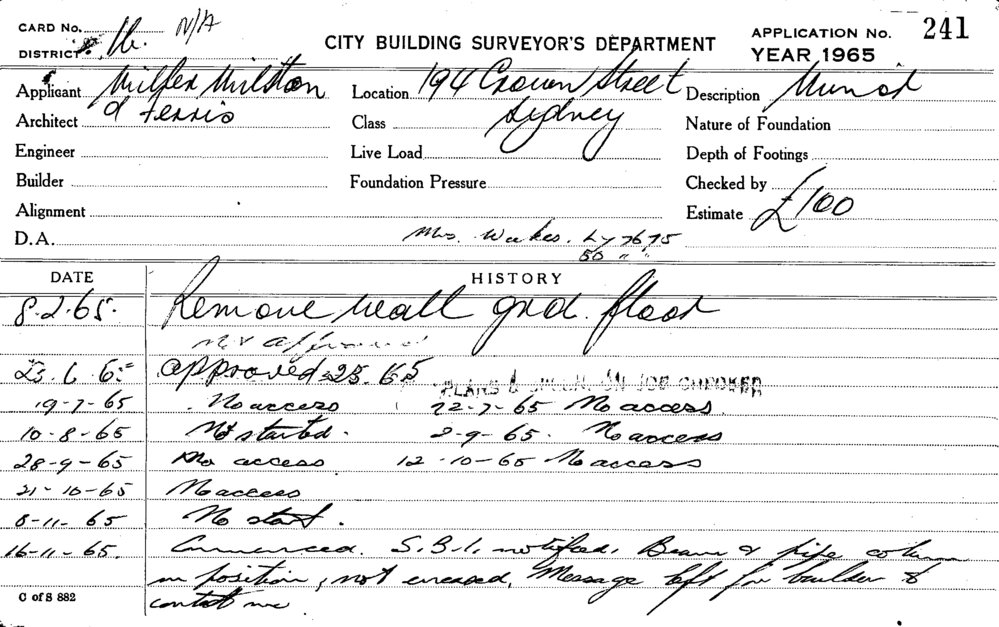 CARD No. N/A
DISTRICT
CITY BUILDING SURVEYOR'S DEPARTMENT
APPLICATION No. 241
YEAR 1965
Applicant Milston
& Ferris
Location 194 Crown Street
Sydney
Description Minor
Architect
Class
Nature of Foundation
Engineer
Live Load
Depth of Footings
Builder
Foundation Pressure
Checked by
Alignment
Estimate £100
D.A.
Mrs. Weekes. LY 7675
50 " "
DATE HISTORY
8.2.65. Remove wall gnd. floor
23.6.65 approved 23.6.65
PLANS & SPECN. ON JOB CHECKED
19-7-65 No access 22-7-65 No access.
10-8-65 Not started. 2-9-65. No access
28-9-65 No access 12-10-65 No access
21-10-65 No access
8-11-65 No start.
16-11-65. Commenced. S.B.I. notified. Beam & pipe column
in position, not encased. Message left for builder to
contact me
C of S 882